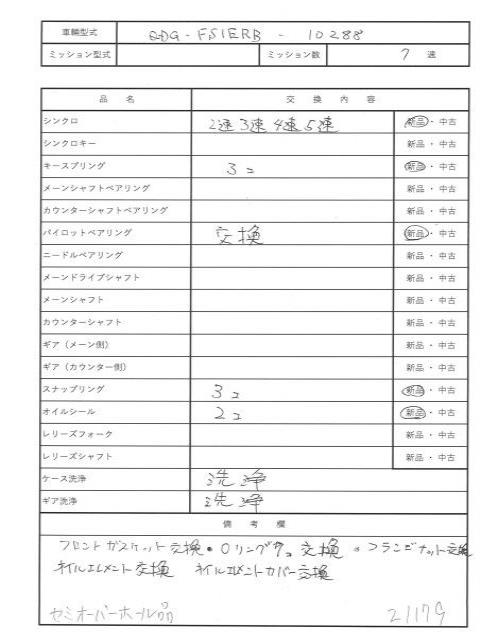 車輌型式 QDG-FS1ERB-10288
ミッション型式 ミッション数 7 速
品名 交換内容
シンクロ 2速 3速 4速 5速 新品・中古
シンクロキー 新品・中古
キースプリング 3コ 新品・中古
メーンシャフトベアリング 新品・中古
カウンターシャフトベアリング 新品・中古
パイロットベアリング 交換 新品・中古
ニードルベアリング 新品・中古
メーンドライブシャフト 新品・中古
メーンシャフト 新品・中古
カウンターシャフト 新品・中古
ギア(メーン側) 新品・中古
ギア(カウンター側) 新品・中古
スナップリング 3コ 新品・中古
オイルシール 2コ 新品・中古
レリーズフォーク 新品・中古
レリーズシャフト 新品・中古
ケース洗浄 洗浄
ギア洗浄 洗浄
備考欄
フロントガスケット交換・Oリング 交換・フランジナット交換
オイルエレメント交換 オイルエレメントカバー交換
セミオーバーホール品 21179